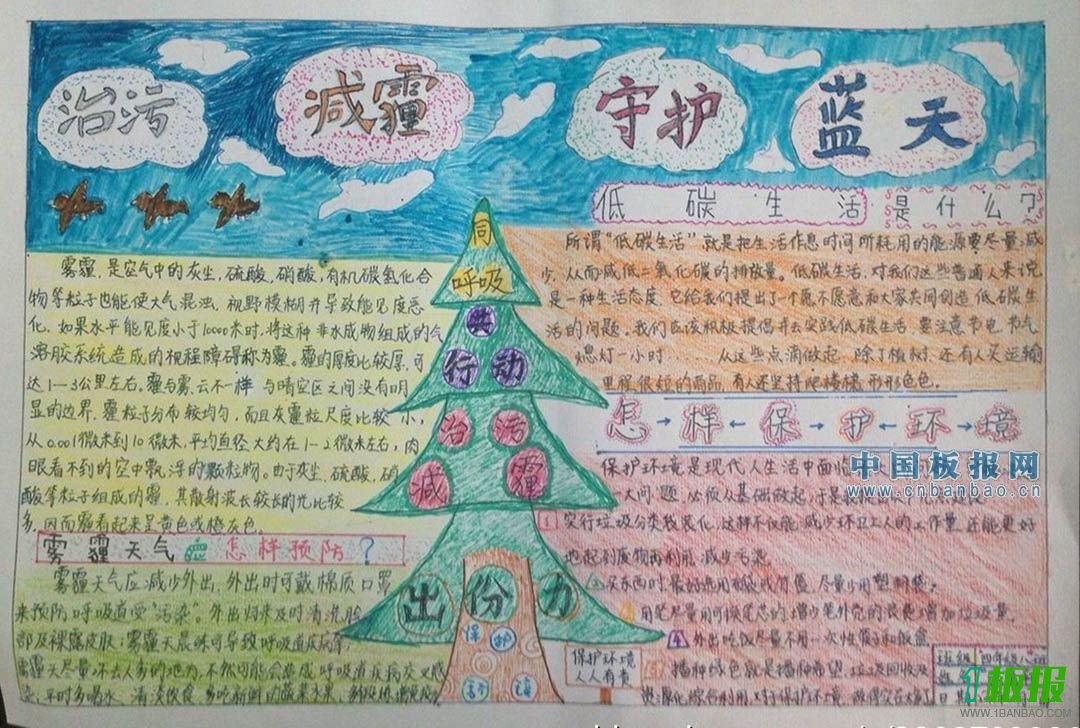 治污 减霾 守护 蓝天
低碳生活是什么?
雾霾，是空气中的灰尘，硫酸，硝酸，有机碳氢化合
物等粒子也能使大气混浊，视野模糊并导致能见度恶
化，如果水平能见度小于10000米时，将这种非水成物组成的气
溶胶系统造成的视程障碍称为霾。霾的厚度比较厚，可
达1—3公里左右，霾与雾、云不一样，与晴空区之间没有明
显的边界，霾粒子分布较均匀，而且灰霾粒尺度比较小，
从0.001微米到10微米，平均直径大约在1-2微米左右，肉
眼看不到的空中飘浮的颗粒物。由于灰尘，硫酸，硝
酸等粒子组成的霾，其散射波长较长的光比较
多，因而霾看起来呈黄色或橙灰色。
雾霾天气应怎样预防？
雾霾天气应减少外出，外出时可戴棉质口罩
来预防呼吸道受“污染”。外出归来及时清洗脸
部及裸露皮肤；雾霾天晨练可导致呼吸道疾病等，
雾霾天尽量不去人多的地方，不然可能会造成呼吸道疾病交叉感
平时多喝水，清淡饮食
同
呼吸
共
行动
治污
减霾
出份力
保护
环境
所谓“低碳生活”就是把生活作息时间所耗用的能源要尽量减
少，从而减低二氧化碳的排放量。低碳生活，对我们这些普通人来说
是一种生活态度，它给我们提出了个愿不愿意和大家共同创造低碳生
活的问题。我们应该积极提倡并去实践低碳生活，要注意节电、节气
熄灯一小时……从这些点滴做起，除了植树，还有人买运输
里程很短的商品，有人还坚持爬楼梯，形形色色。
怎→样←保→护←环→境
保护环境是现代人生活中面临
一大问题，必须从基础做起，于是
1 实行垃圾分类袋装化，这样不仅能减少环卫工人的工作量，还能更好
地起到废物再利用，减少污染
2 买东西时，最好选用布袋或竹篮，尽量少用塑料袋。
用笔尽量用可换笔芯的，增少笔外壳的浪费增加垃圾量。
4 外出吃饭尽量不用一次性筷子和饭盒
播种绿色就是播种希望，垃圾回收及
资源化，综合利用，对于保护环境
保护环境
人人有责
班级 四年级八班
中国板报网
www.cnbanbao.cn
1板报
WWW.1BANBAO.COM